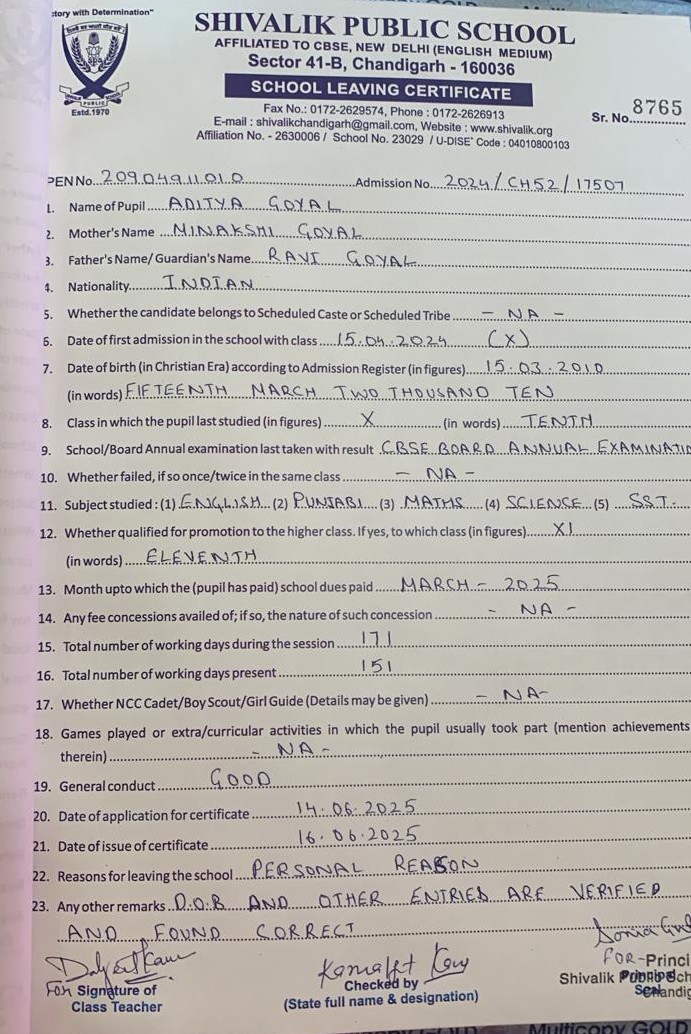 :tory with Determination"
SHIVALIK PUBLIC SCHOOL
AFFILIATED TO CBSE, NEW DELHI (ENGLISH MEDIUM)
Sector 41-B, Chandigarh - 160036
SCHOOL LEAVING CERTIFICATE
PUBLIC
Estd.1970
Fax No.: 0172-2629574, Phone : 0172-2626913
E-mail : shivalikchandigarh@gmail.com, Website : www.shivalik.org
Affiliation No. - 2630006 / School No. 23029 / U-DISE* Code : 04010800103
Sr. No. 8765
PEN No. 20904911010 Admission No. 2024/CH52/17507
1. Name of Pupil ADITYA GOYAL
2. Mother's Name MINAKSHI GOYAL
3. Father's Name/ Guardian's Name RAVI GOYAL
4. Nationality INDIAN
5. Whether the candidate belongs to Scheduled Caste or Scheduled Tribe - NA -
6. Date of first admission in the school with class 15.04.2024 (X)
7. Date of birth (in Christian Era) according to Admission Register (in figures) 15.03.2010
(in words) FIFTEENTH MARCH TWO THOUSAND TEN
8. Class in which the pupil last studied (in figures) X (in words) TENTH
9. School/Board Annual examination last taken with result CBSE BOARD ANNUAL EXAMINATIO
10. Whether failed, if so once/twice in the same class - NA -
11. Subject studied : (1) ENGLISH (2) PUNJABI (3) MATHS (4) SCIENCE (5) SST.
12. Whether qualified for promotion to the higher class. If yes, to which class (in figures) XI
(in words) ELEVENTH
13. Month upto which the (pupil has paid) school dues paid MARCH - 2025
14. Any fee concessions availed of; if so, the nature of such concession - NA -
15. Total number of working days during the session 171
16. Total number of working days present 151
17. Whether NCC Cadet/Boy Scout/Girl Guide (Details may be given) - NA-
18. Games played or extra/curricular activities in which the pupil usually took part (mention achievements
therein) - NA -
19. General conduct GOOD
20. Date of application for certificate 14.06.2025
21. Date of issue of certificate 16.06.2025
22. Reasons for leaving the school PERSONAL REASON
23. Any other remarks D.O.B AND OTHER ENTRIES ARE VERIFIED
AND FOUND CORRECT
For Signature of
Class Teacher
Checked by
(State full name & designation)
FOR-Princi
Shivalik Public Sch
Multicopy GOLD